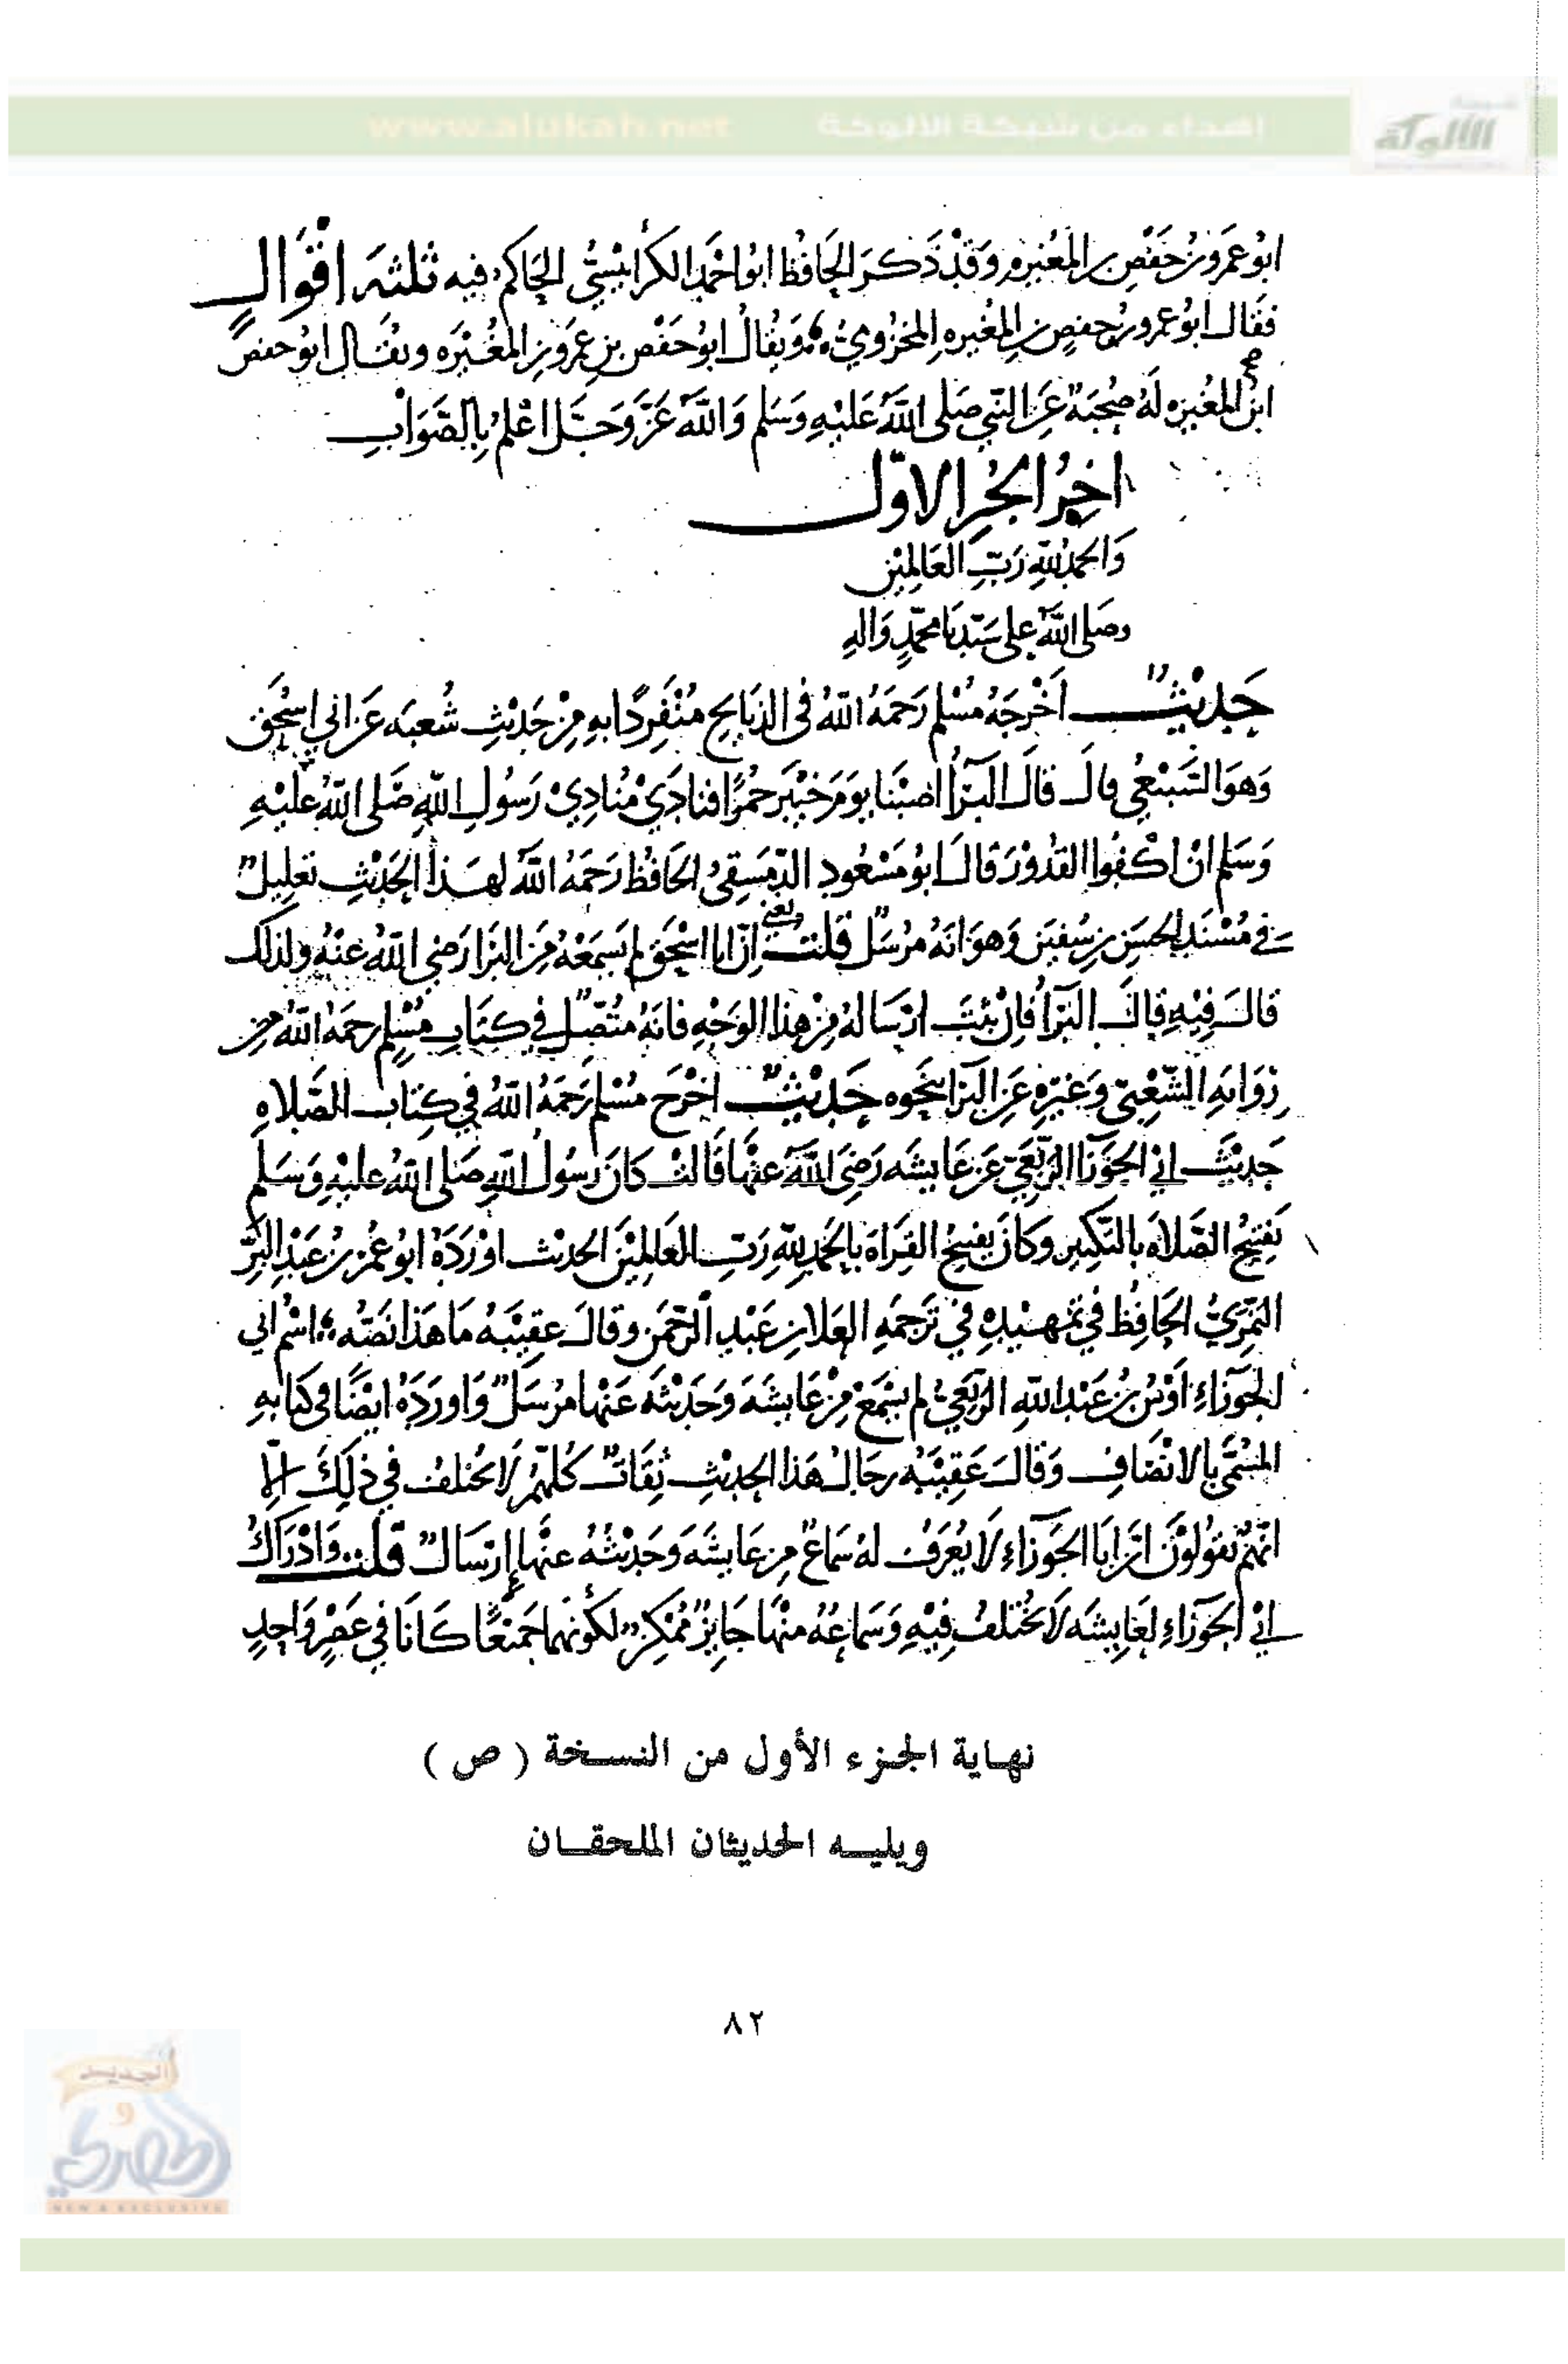 www.alukah.net إهداء من شبكة الألوكة
شبكة
الألوكة
ابُو عَمرو بنُ حَفْصِ بن المغيره وَقَدْ ذَكَرَ الحَافظ ابُو احْمَد الكرَابيْسِيُّ الحَاكم فيه ثلثه اقْوَال
فقَال ابُو عمرو بن حفصِ بن المغُيره المخزُوميُّ وَيُقالُ ابُو حَفْص بن عَمرو بن المغيَره ويقَال ابُو حفص
ابنُ المغُيره لَهُ صُحبَة عَنِ النَّبي صَلى اللهُ عَليْهِ وَسَلم وَاللهُ عَزَّ وَجَلَّ اعْلمُ بِالصَّوَابِ
اخِرُ الجُزءِ الاوّل
وَالحمدُ للهِ رَبِّ العَالمِيْن
وصَلى اللهُ على سَيّدنَا محمّدٍ وَالهِ
حَديْثٌ اخْرجَهُ مُسْلم رَحمَهُ اللهُ في الذبَايح مُنْفَرِدًا بهِ مِنْ حَديْثِ شُعبَه عَن ابي اسْحَق
وَهوَ السَّبيْعيُّ قال قالَ البَرَأُ اصَبْنَا يومَ خيْبَر حُمُرًا فنادَيْ مُنَادِيْ رَسُولِ اللهِ صَلى اللهُ عليْهِ
وَسَلم انْ اكْفُوا القدُوْرَ وقالَ ابُو مَسْعُود الدّمَشقيُّ الحَافظ رَحمَهُ اللهُ لهَذا الحَديْثِ تعليلٌ
في مُسْنَدِ الحسَن بن سُفيَن وَهوَ انهُ مرُسَلٌ قلت يعني انّ ابا اسْحَق لم يَسمَعْهُ مِنَ البَرَا رَضي اللهُ عنْهُ ولذلك
قالَ فيْهِ قالَ البَرَأُ فَانْ ثبَتَ ارْسَالهُ مِنْ هذا الوَجْهِ فانهُ مُتّصلٌ في كتابِ مُسْلمٍ رحمَهُ اللهُ من
رِوَايَةِ الشّعْبيّ وَغيْرِهِ عَنِ البَرَا بنحوه حَديْثٌ اخْرَجَ مُسْلم رَحمَهُ اللهُ في كتاب الصَّلاه
حَديْثَ ابي الجَوْزَا الرّبَعيّ عَن عَايشَه رَضيَ اللهُ عنْهَا قَالتْ كانَ رسُولُ اللهِ صَلى اللهُ عليْهِ وَسَلم
يَفتتِحُ الصَّلاةَ بالتّكبير وَكانَ يفتتحُ القِرَاةَ بالحَمْدُ للهِ رَبِّ العَالمِيْنَ الحديث اوْرَدَهُ ابُو عُمر بنُ عَبْدِ البَرّ
النّمَرِيُّ الحَافظ في تمهيْدِهِ في تَرجَمةِ العَلا بن عَبْدِ الرّحمَن وقالَ عقيْبَهُ مَا هَذا نَصّه اسْم ابي
الجَوْزَاءِ اوْسُ بنُ عَبْدِ اللهِ الرّبَعيُّ لم يسْمَعْ مِنْ عَايشَه وَحَديْثُهُ عَنْها مُرْسَلٌ وَاورَدَهُ ايْضًا في كتابهِ
المسَمَّى بالانْصَافِ وَقالَ عَقِيْبَهُ رجَالُ هَذا الحَديْثِ ثقاتٌ كُلُّهم لا يختلف في ذلِكَ الاّ
انّهُم يَقولوْنَ انّ ابَا الجَوْزَاءِ لا يعُرَفُ لهُ سَماعٌ مِن عَايشَه وَحَديْثُهُ عنْهَا إرسَالٌ قلت وَادْرَاكُ
ابي الجَوْزَاءِ لعَايشَه لا يُختلفُ فيْهِ وَسَماعُهُ منْهَا جَايزٌ ممُكنٌ لكونهِما جَميْعًا كانَا في عَصْرٍ وَاحِدٍ
نهاية الجزء الأول من النسخة ( ص )
ويليه الحديثان الملحقان
٨٢
الجديد
و
المصري
NEW & EXCLUSIVE